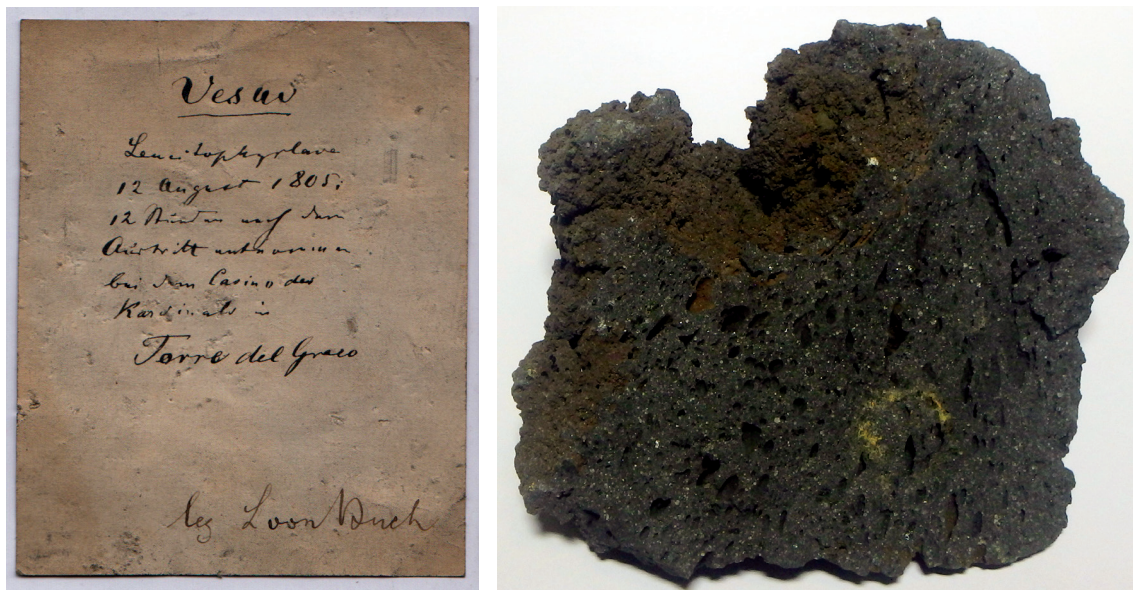 Vesuv
Leucitophyrlava
12 August 1805;
12 Stunden nach dem
Austritt entnommen
bei dem Casino des
Kardinals in
Torre del Greco
leg L von Buch